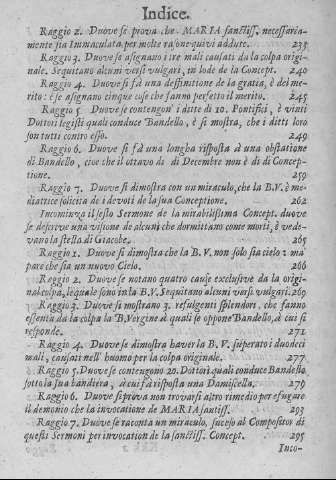 Indice.
Raggio 2. Duove si prova che MARIA sanctiss. necessaria-
mente sia Immaculata per molte ra oni quivi addute. 235
Raggio 3. Duove se asignano i tre mali causati da la colpa origi-
nale. Sequitano alcuni versi vulgari, in lode de la Concept. 240
Raggio 4. Duove si fà una deffinitione de la gratia, è del me-
rito: è se asignano cinque cose che fanno perfetto il merito. 245
Raggio 5 Duove se contengon' i ditte di 10. Pontifici, è vinti
Dottori legisti quali conduce Bandello, è si mostra, che i ditti loro
son tutti contro esso. 249
Raggio 6. Duove si fà una longha risposta à una obstatione
di Bandello, cioe che il ottavo di di Decembre non è di di Concep-
tione. 259
Raggio 7. Duove si dimostra con un miraculo, che la B.V. è me-
diatrice solicita de i devoti de la sua Conceptione. 262
Incominza il sesto Sermone de la mirabilissima Concept. duove
se descrive una visione de alcuni che dormittano come morti, è vede-
vano la stella di Giacobe. 265
Raggio 1. Duove si dimostra che la B. V. non solo sia cielo: ma
pare che sia un nuovo Cielo. 266
Raggio 2. Duove se notano quatro cause exclusive da la origi-
nal colpa, lequale sono in la B.V. Sequitano alcuni versi vulgari. 269
Raggio 3. Duove si mostrano 3. refulgenti splendori, che fanno
essenta da la colpa la B. Vergine à quali se oppone Bandello, à cui si
responde. 271
Raggio 4. Duove se dimostra haver la B. V. superato i duodeci
mali, causati nell' huomo per la colpa originale. 277
Raggio 5. Duove se contengono 20. Dottori quali conduce Bandello
sotto la sua bandira, à cui fà risposta una Damiscella. 279
Raggio 6. Duove si prova non trovarsi altro rimedio per esugare
il demonio che la invocatione de MARIA santiss. 293
Raggio 7. Duove se raconta un miraculo, suceso al Compositor di
questi Sermoni per invocation de la sanctiss. Concept. 295
Inco-